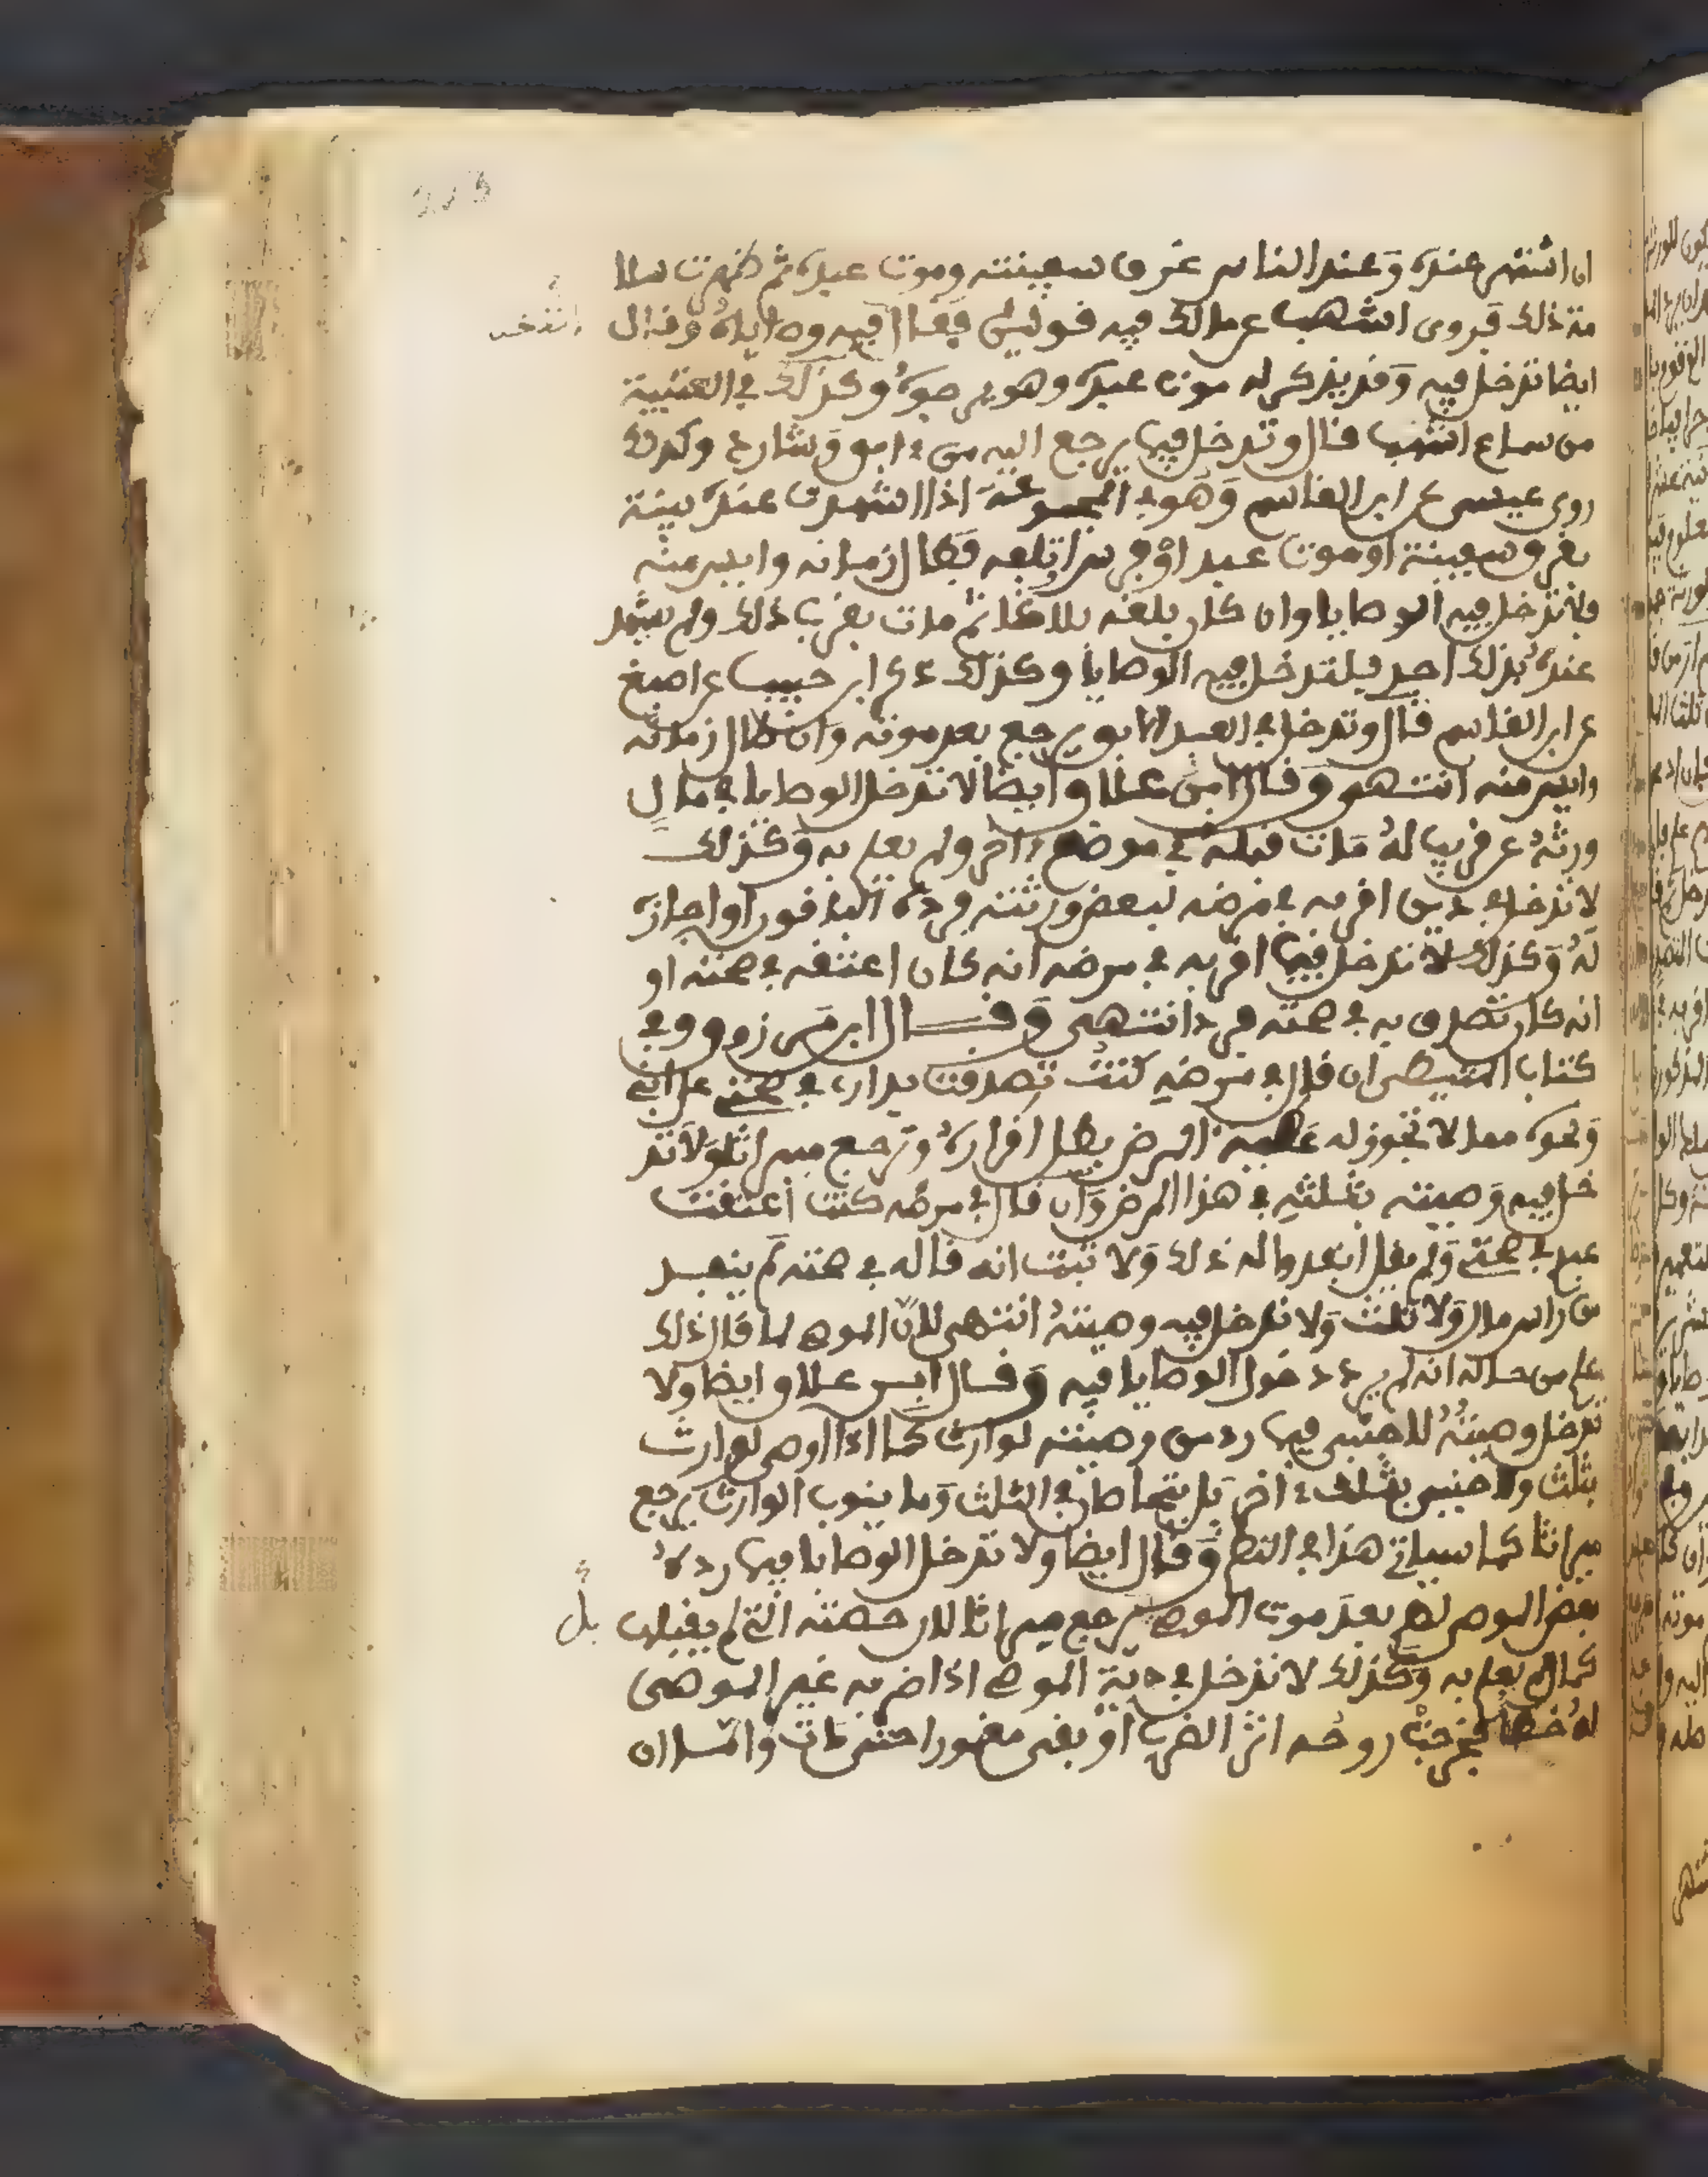 ان اشتهر عنده وعند الناس غرق سفينته وموت عبده ثم ظهرت سلا
مة ذلك فروى اشهب عن مالك فيه قولين فقال فيه وقال
ايضا تدخل فيه وقد يذكر له موت عبده وهو يرجوه وكذلك في العتبية
من سماع اشهب قال وتدخل فيما يرجع اليه من ءابق وشارد وكذلك
روى عيسى عن ابن القاسم وهو في المجموعة اذا اشهدت عنده بينة
بغرق سفينة او موت عبد او فرس ابلغه فطال زمانه وايس منه
فلا تدخل فيه الوصايا وان كان بلغه بلاغا ثم مات بقرب ذلك ولم يشهد
عنده بذلك احد فلتدخل فيه الوصايا وكذلك ذكر ابن حبيب عن اصبغ
عن ابن القاسم قال وتدخل في العبد الابق يرجع بعد موته وان طال زمانه
وايس منه انتهى وقال ابن علاق وايضا لا تدخل الوصايا في مال
ورثه عن قريب له مات قبله في موضع ءاخر ولم يعلم به وكذلك
لا تدخل في دين اقر به في مرضه لبعض ورثته ورده الباقون او اجازه
له وكذلك لا تدخل فيما اقر به في مرضه انه كان اعتقه في صحته او
انه كان تصدق به في صحته فرد انتهى وقال ابن مرزوق وفي
كتاب ان قال في مرضه كنت تصدقت بداري في صحتي على ابني
ونحوه مما لا تجوز له عطيته المرض بطل اقراره وترجع ميراثا ولا تد
خل فيه وصيته بثلثه في هذا المرض وان قال في مرضه كنت اعتقت
عبدي في صحتي ولم يقل انفدوا له ذلك ولا ثبت انه قاله في صحته لم ينفد
من راس مال ولا ثلث ولا تدخل فيه وصيته انتهى لان الموصي لما قال ذلك
علم من حاله انه لم يرد دخول الوصايا فيه وقال ابن علاق وايضا ولا
تدخل وصيته للاجنبي فيما رد من وصيته لوارث كما اذا اوصى لوارث
بثلث ولاجنبي بثلث ءاخر بل يتحاصان في الثلث وما ينوب الوارث يرجع
ميراثا كما سياتي هذا في النظم وقال ايضا ولا تدخل الوصايا فيما رده
بعض الموصى لهم بعد موت الموصي يرجع ميراثا لان حصته التي لم يقبلها بل
كمال لم يعلم به وكذلك لا تدخل في دية الموصي اذا ضربه غير الموصى
له خطا فخرجت روحه اثر الضرب او بقي مغمورا حتى مات واما ان